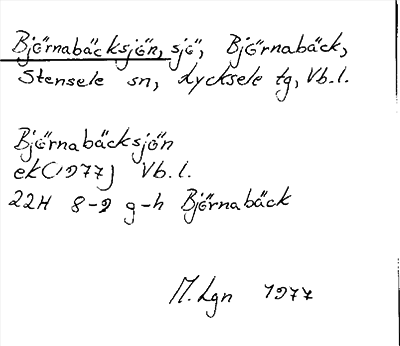 Björnabäcksjön, sjö, Björnabäck,
Stensele sn, Lycksele tg, Vb.l.
Björnabäcksjön
ek(1977) Vb.l.
22H 8-9 g-h Björnabäck
M.Lgn 1977